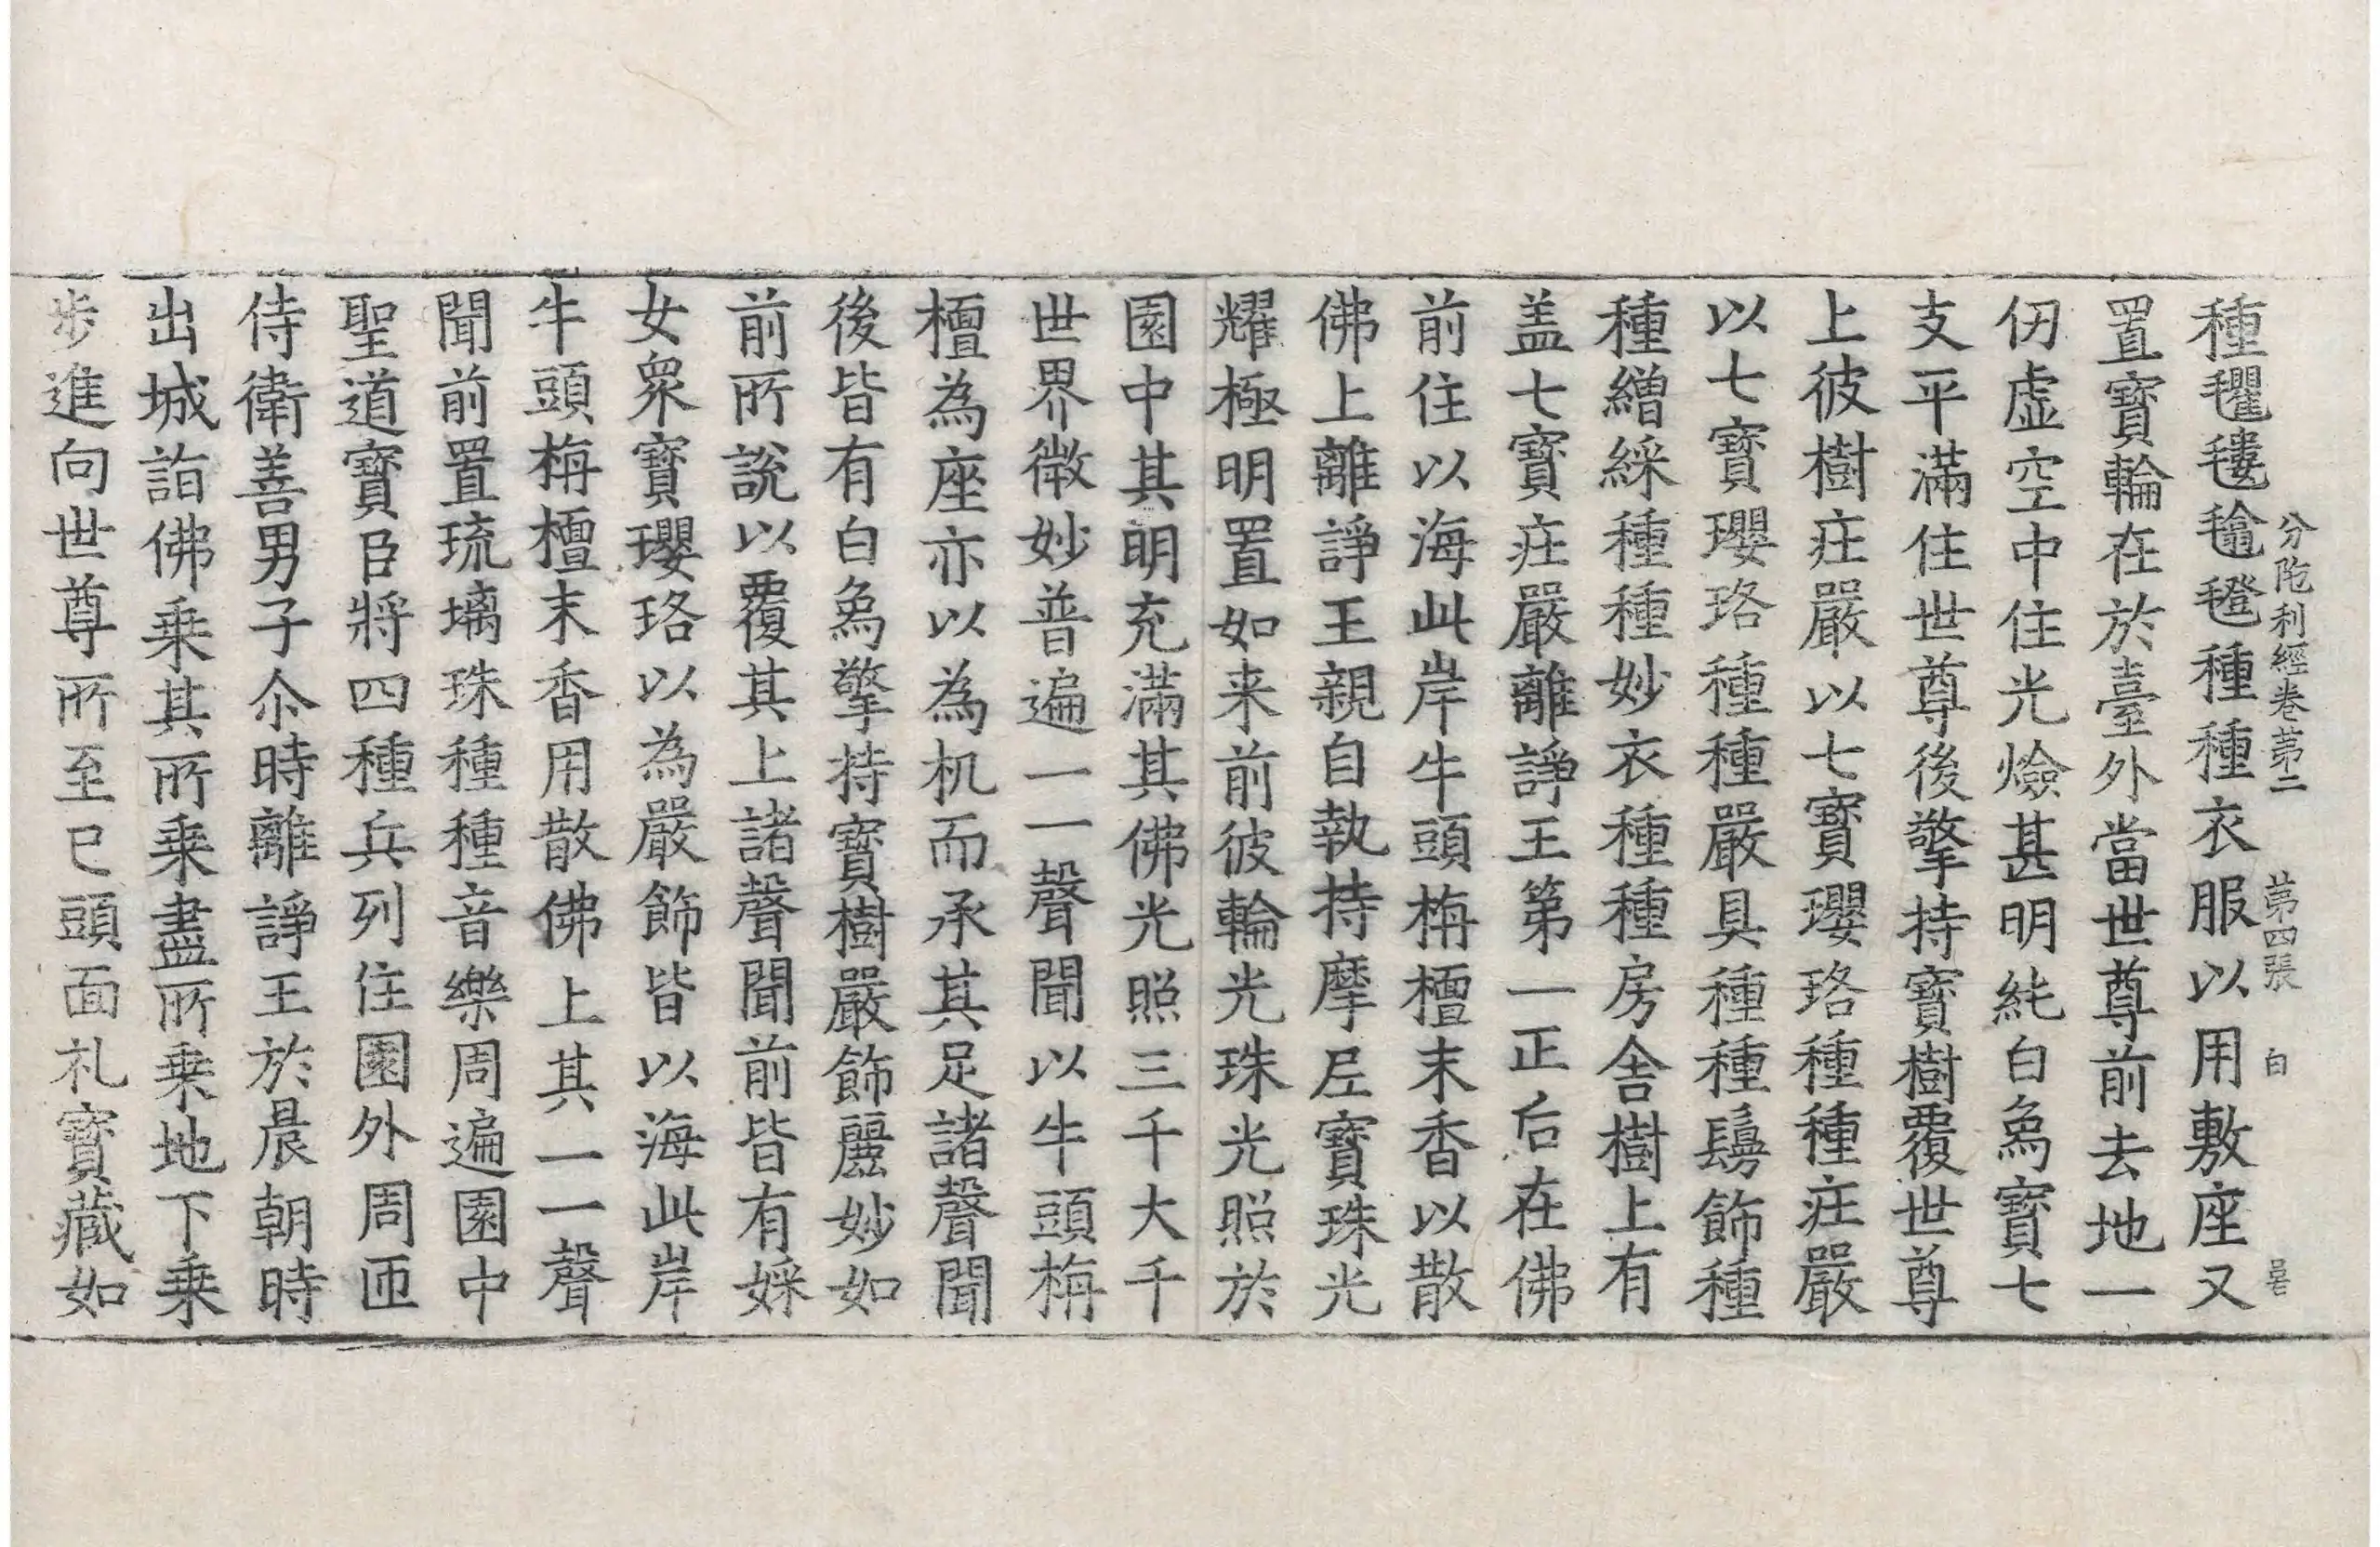 分陁利經卷第二 第四張 白
種𣰽𣯫毾㲪種種衣服以用敷座又
置寶輪在於臺外當世尊前去地一
仞虛空中住光燄甚明純白象寶七
支平滿住世尊後擎持寶樹覆世尊
上彼樹庄嚴以七寶瓔珞種種庄嚴
以七寶瓔珞種種嚴具種種鬘飾種
種繒綵種種妙衣種種房舍樹上有
盖七寶庄嚴離諍王第一正后在佛
前住以海此岸牛頭栴檀末香以散
佛上離諍王親自執持摩尼寶珠光
耀極明置如来前彼輪光珠光照於
園中其明充滿其佛光照三千大千
世界微妙普遍一一聲聞以牛頭栴
檀為座亦以為机而承其足諸聲聞
後皆有白象擎持寶樹嚴飾麗妙如
前所說以覆其上諸聲聞前皆有婇
女衆寶瓔珞以為嚴飾皆以海此岸
牛頭栴檀末香用散佛上其一一聲
聞前置琉璃珠種種音樂周遍園中
聖道寶臣將四種兵列住園外周匝
侍衛善男子尒時離諍王於晨朝時
出城詣佛乗其所乗盡所乗地下乗
步進向世尊所至已頭面礼寶藏如